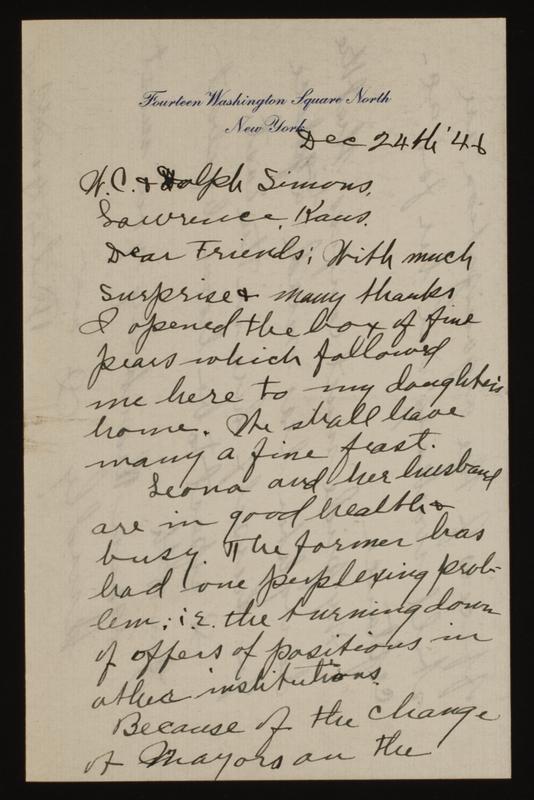 Fourteen Washington Square North
New York
Dec 24th '46
W.C. & Dolph Simons,
Lawrence, Kans.
Dear Friends; With much
surprise & many thanks
I opened the box of fine
pears which followed
me here to my daughter's
home. We shall have
many a fine feast.
Leona and her husband
are in good health &
busy. The former has
had one perplexing prob-
lem; i.e. the turning down
of offers of positions in
other institutions.
Because of the change
of Mayors on the